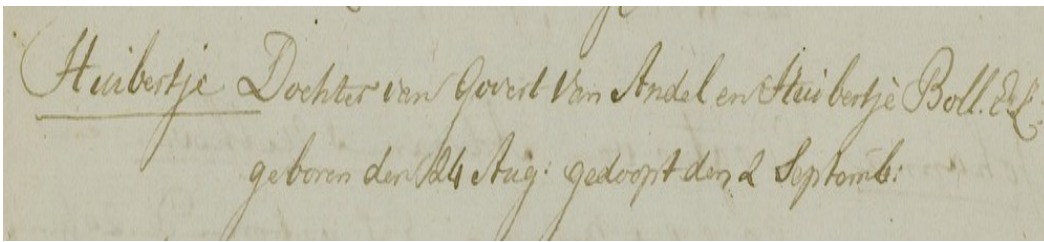 Huibertje Dochter van Govert Van Andel en Huibertje Boll. E.L.
geboren den 24 Aug: gedoopt den 2 Septemb: